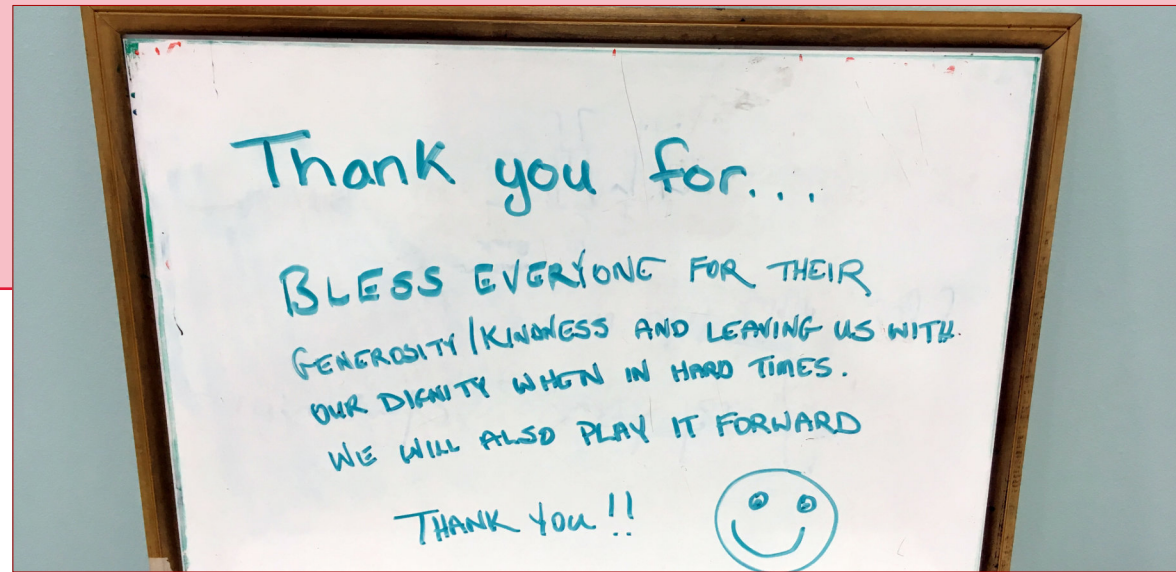 Thank you for...
BLESS EVERYONE FOR THEIR
GENEROSITY/KINDNESS AND LEAVING US WITH
OUR DIGNITY WHEN IN HARD TIMES.
WE WILL ALSO PLAY IT FORWARD
THANK YOU!!